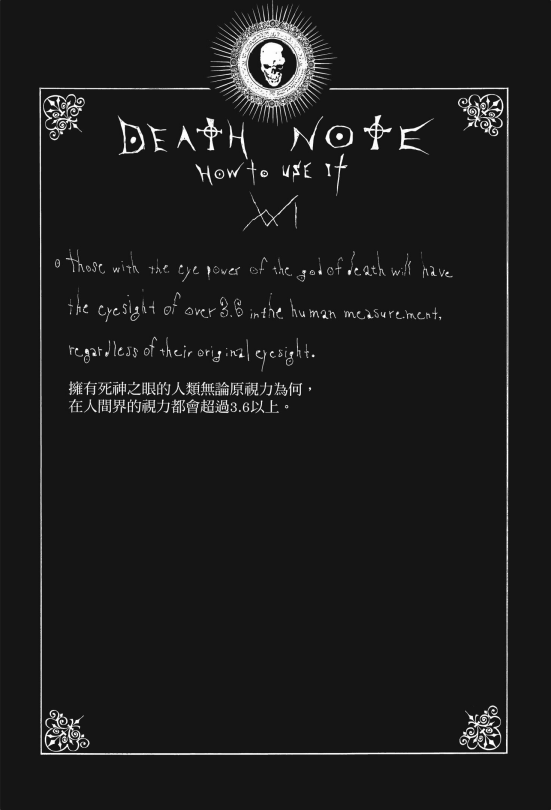 DEATH NOTE
HOW to USE IT
XVI
Those with the eye power of the god of death will have
the eyesight of over 3.6 in the human measurement,
regardless of their original eyesight.
擁有死神之眼的人類無論原視力為何，
在人間界的視力都會超過3.6以上。